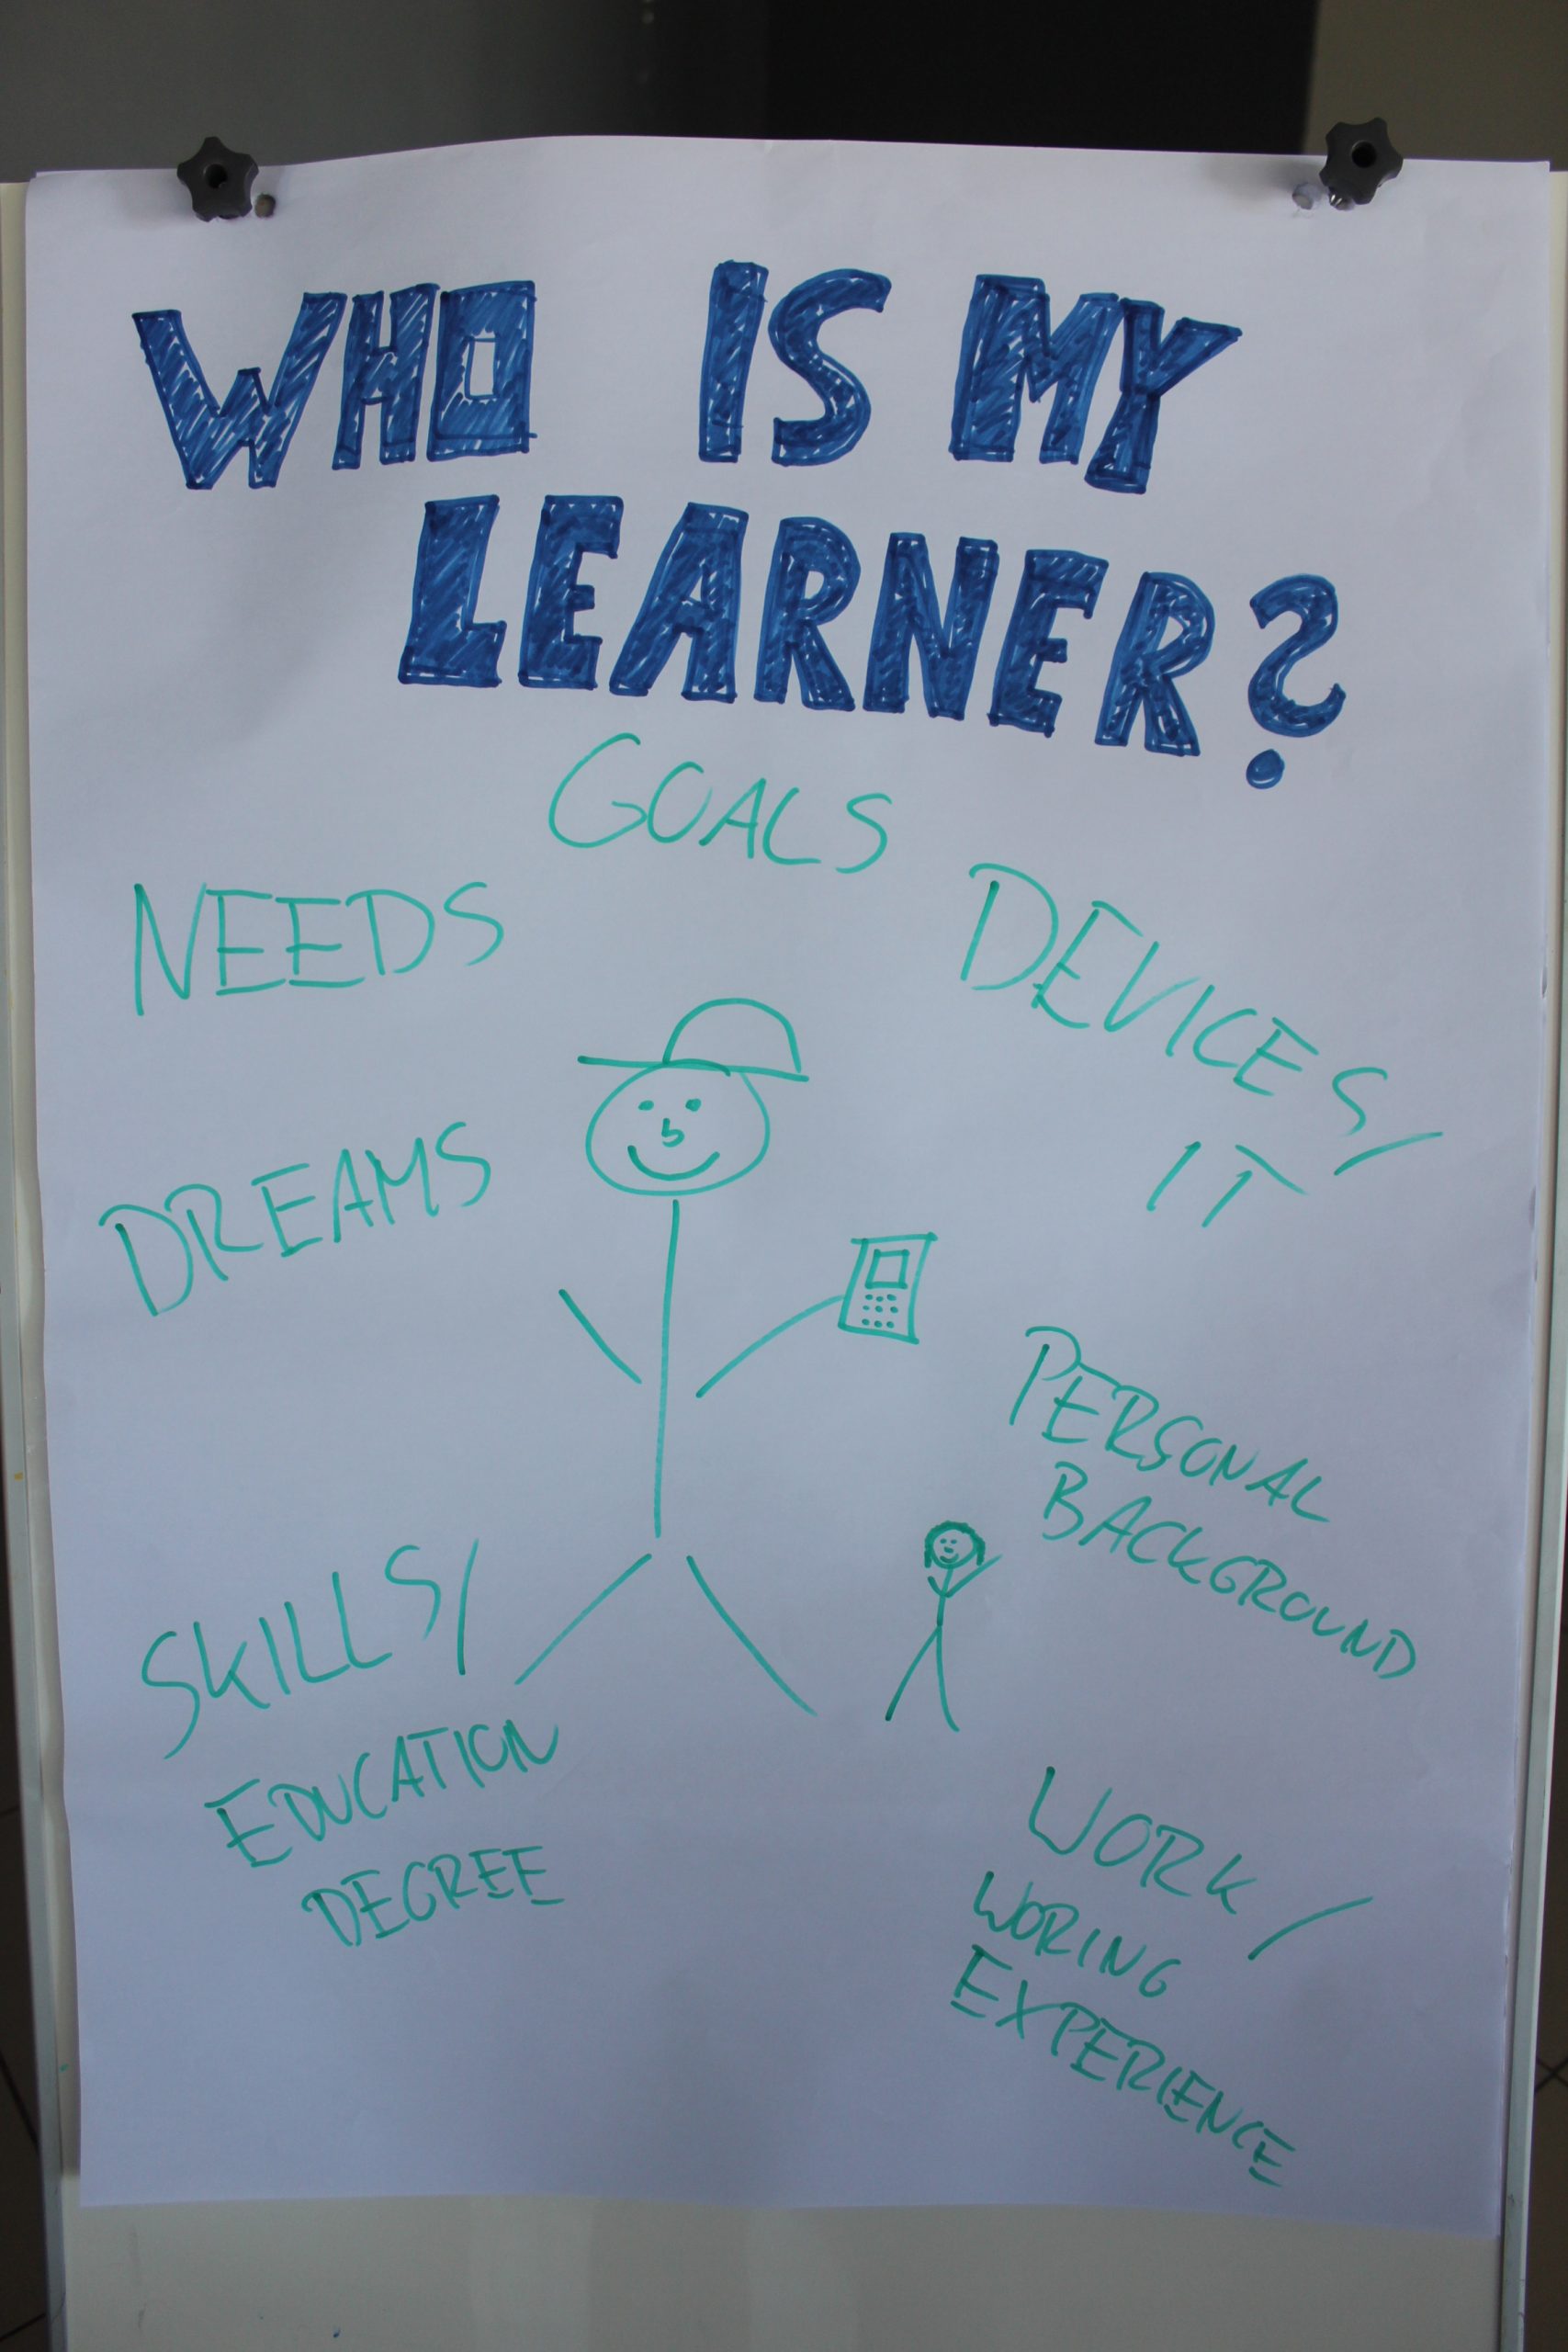 WHO IS MY
LEARNER?
GOALS
NEEDS
DEVICES/
IT
DREAMS
PERSONAL
BACKGROUND
SKILLS/
EDUCATION
DEGREE
WORK/
WORING
EXPERIENCE